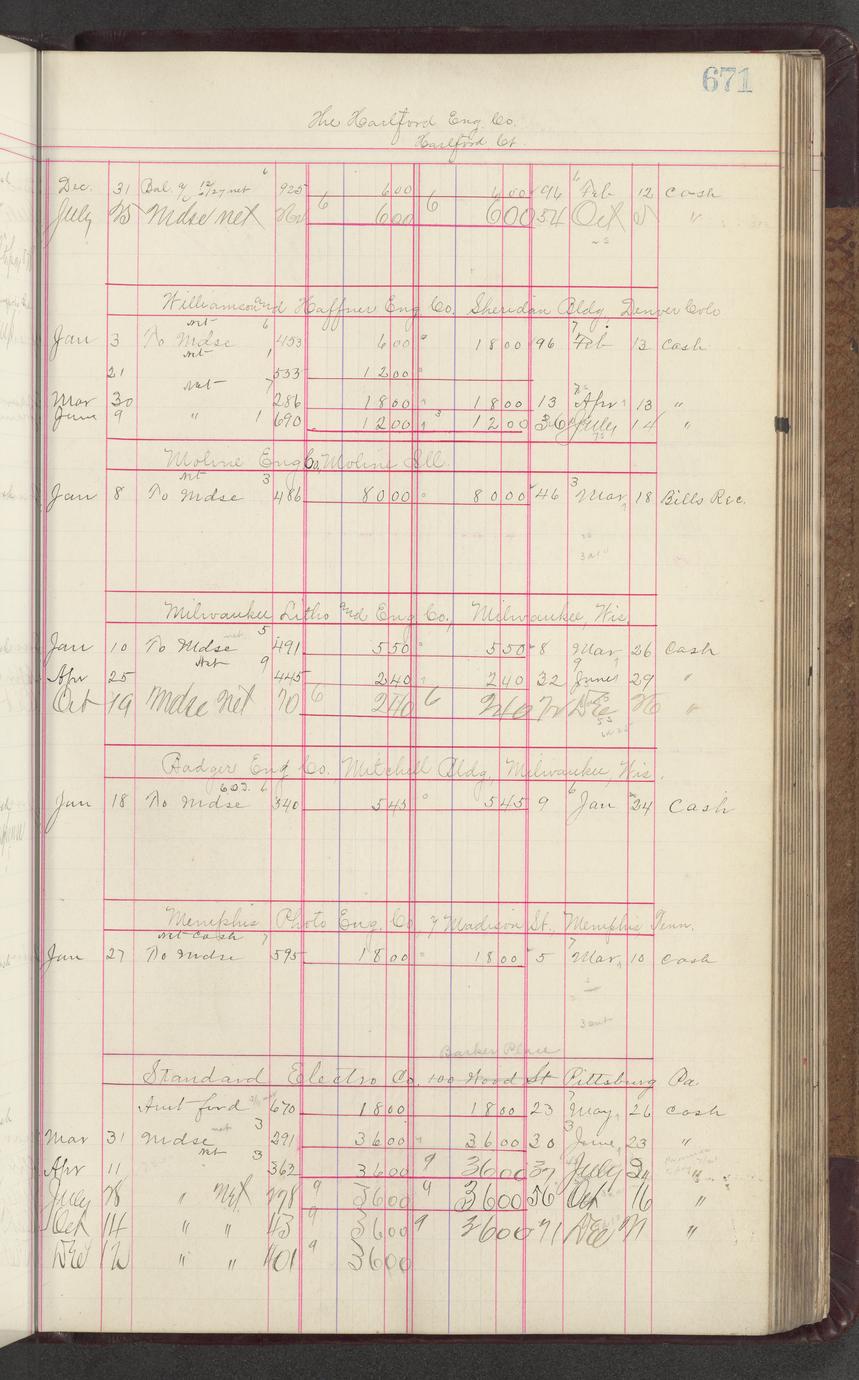 671
The Hartford Eng Co.
Hartford Ct.
Dec. 31 Bal. of 12/27 net 6 925 600 600 96 6 Feb 12 Cash
July 25 Mdse net 6 600 6 600 54 Oct 5 "
Williamson and Haffner Eng Co. Sheridan Bldg, Denver Colo
net 6 7
Jan 3 To Mdse 453 600 " 1800 96 Feb 13 Cash
net 1
21 533 1200 "
Net 7
Mar 30 286 1800 " 1800 13 Apr 13 "
June 9 " 1 690 1200 " 3 1200 36 July 14 "
Moline Eng Co, Moline Ill.
net 3 3
Jan 8 To Mdse 486 8000 " 8000 46 Mar 18 Bills Rec.
Milwaukee Litho and Eng Co, Milwaukee, Wis,
net 5
Jan 10 To Mdse 491 550 " 550 8 Mar 26 Cash
Net 9 9
Apr 25 445 240 " 240 32 June 29 "
Oct 19 Mdse Net 70 6 240 6 240 72 Dec 26 "
Badger Eng Co. Mitchell Bldg, Milwaukee, Wis.
60 J. 6 6
Jan 18 To Mdse 540 545 " 545 9 Jan 24 Cash
Memphis Photo Eng. Co 7 Madison St., Memphis Tenn.
Net Cash 7 7
Jan 27 To Mdse 595 1800 " 1800 5 Mar 10 Cash
3
Barker Place
Standard Electro Co. 100 Wood St Pittsburg Pa.
Amt ford 670 1800 1800 23 7 May 26 Cash
net 3 3
Mar 31 Mdse 291 3600 " 3600 30 June 23 "
Net 3
Apr 11 362 3600 9 3600 37 July "
July 28 " Net 178 9 3600 9 3600 56 Oct 16 "
Oct 14 " " 43 9 3600 9 3600 71 Dec 21 "
Dec 12 " " 401 9 3600